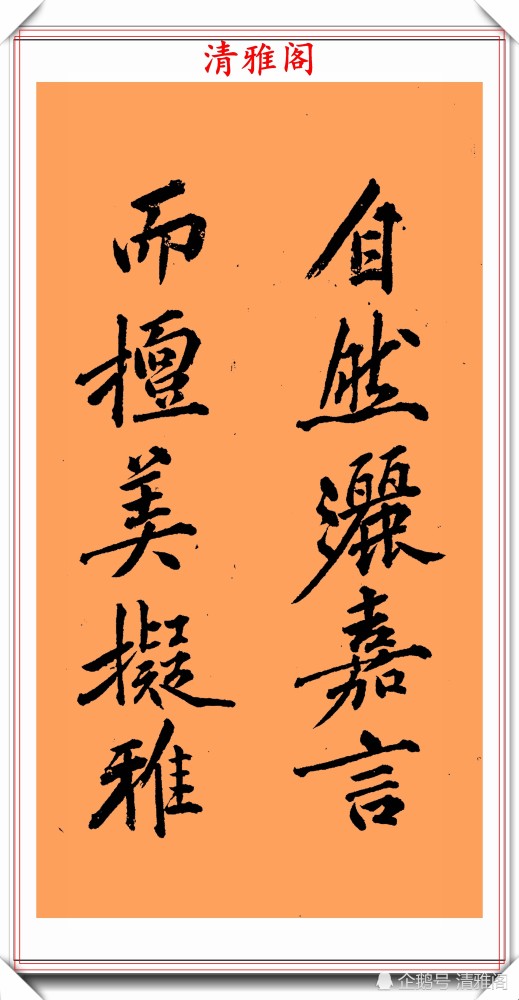 清雅阁
自然灑嘉言
而擅美擬雅
企鹅号 清雅阁